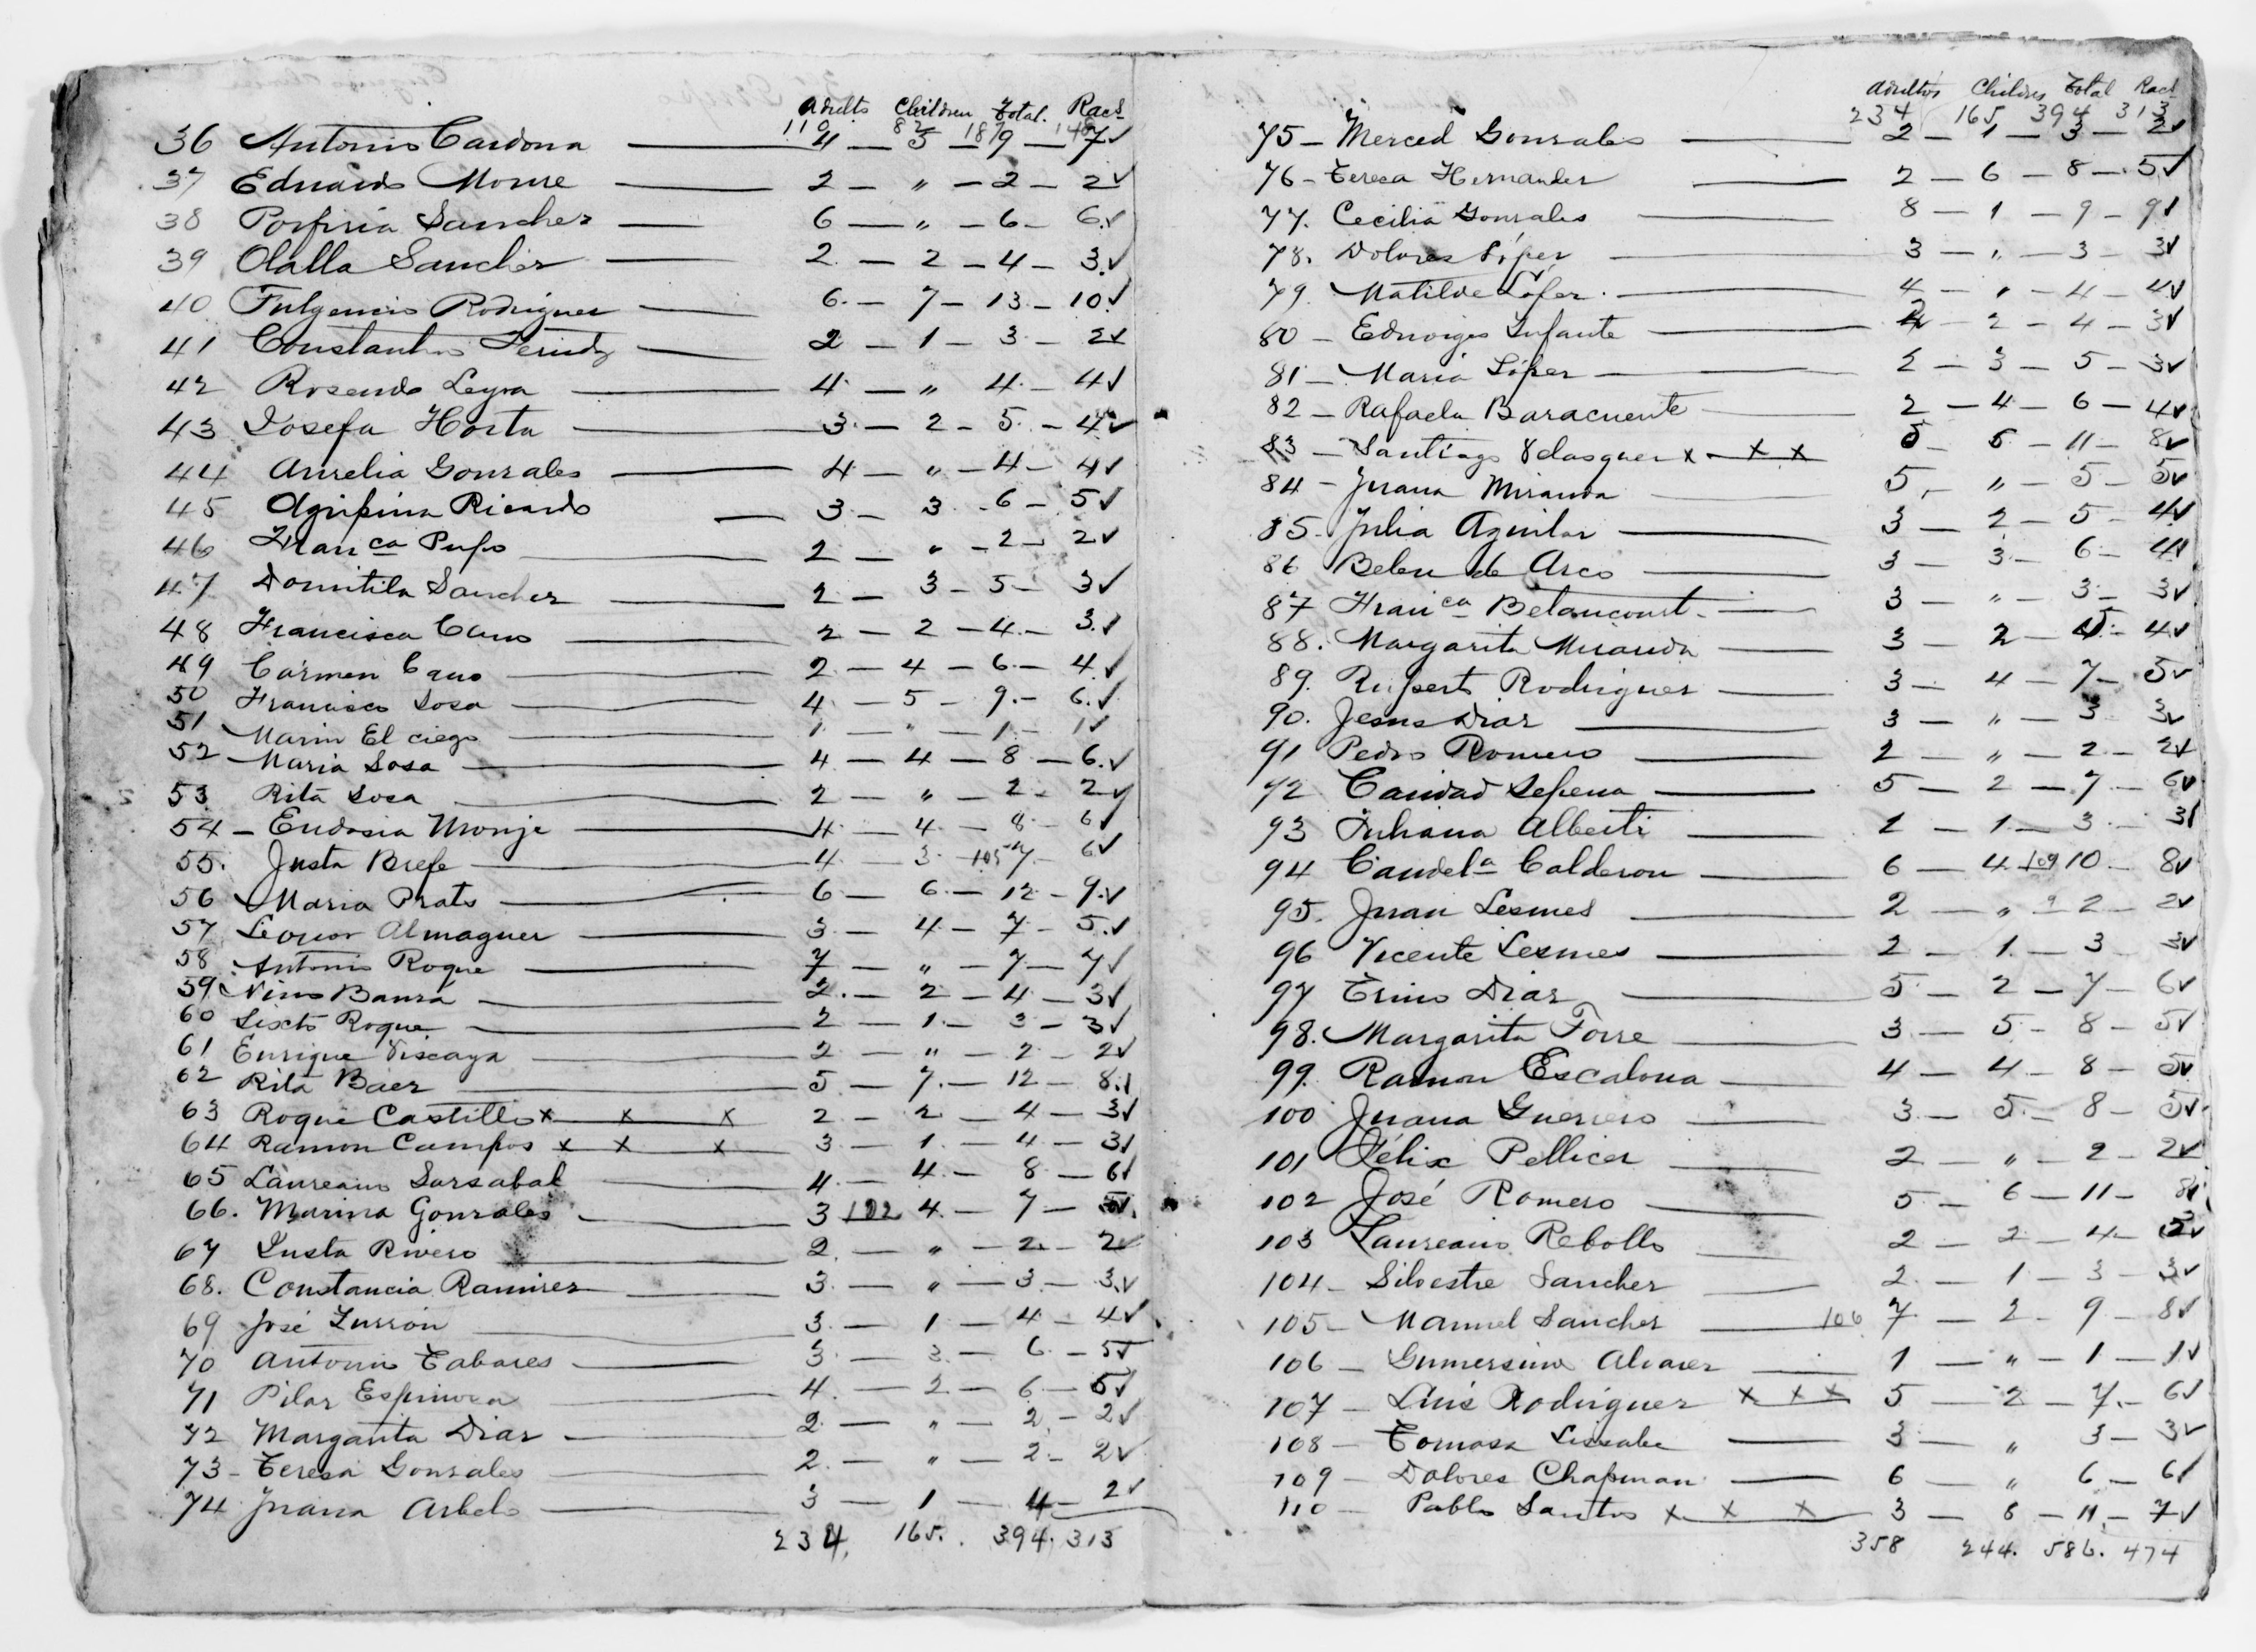 Adults Children Total. Racs
110 82 187 148
36 Antonio Cardona 4 — 5 — 9 — 7✓
37 Eduardo Monre 2 — " — 2 — 2✓
38 Porfiria Sanchez 6 — " — 6 — 6.✓
39 Olalla Sanchez 2 — 2 — 4 — 3.✓
40 Fulgencio Rodriguez 6. — 7 — 13 — 10✓
41 Constantino 2 — 1 — 3 — 2✓
42 Rosendo Leyva 4 — " 4. — 4✓
43 Josefa Horta 3. — 2 — 5. — 4✓
44 Aurelia Gonzales 4 — " — 4 — 4✓
45 Agripina Ricardo 3 — 3 — 6 — 5✓
46 Franca Pupo 2 — " — 2 — 2✓
47 Domitila Sanchez 2 — 3 — 5 — 3✓
48 Francisca Cano 2 — 2 — 4. — 3.✓
49 Carmen Cano 2 — 4 — 6. — 4.✓
50 Francisco Sosa 4 — 5 — 9. — 6.✓
51 Marin El ciego 1 — " — 1 — 1✓
52 Maria Sosa 4 — 4 — 8 — 6.✓
53 Rita Sosa 2 — " — 2 — 2✓
54 — Eudosia Monje 4 — 4. — 8 — 6✓
55. Justa Brefe 4. — 3. — 105 7 — 6✓
56 Maria Prats 6 — 6. — 12 — 9.✓
57 Leonor Almaguer 3 — 4 — 7 — 5.✓
58 Antonio Roque 7 — " — 7 — 7✓
59 Nino Banra 2. — 2 — 4 — 3✓
60 Sixto Roque 2 — 1. — 3 — 3✓
61 Enrique Viscaya 2 — " — 2 — 2✓
62 Rita Baez 5 — 7. — 12 — 8.✓
63 Roque Castillo x x x 2 — 2 — 4 — 3✓
64 Ramon Campos x x x 3 — 1. — 4 — 3✓
65 Laureano Sarsabal 4. — 4. — 8 — 6✓
66. Marina Gonzales 3 102 4. — 7 — 5✓
67 Justa Rivero 2. — " — 2. — 2✓
68. Constancia Ramirez 3. — " — 3 — 3.✓
69 José Zurrón 3. — 1 — 4 — 4✓
70 Antonio Tabares 3. — 3. — 6. — 5✓
71 Pilar Espinoza 4. — 2 — 6 — 5✓
72 Margarita Diaz 2. — " — 2 — 2✓
73 — Teresa Gonzales 2. — " — 2 — 2✓
74 Juana Arbelo 3 — 1 — 4 — 2✓
234. 165. 394. 313
Adults Children Total Racs
234 165 394 313
75 — Merced Gonzales 2 — 1 — 3 — 2✓
76 — Teresa Hernandez 2 — 6 — 8 — 5✓
77. Cecilia Gonzales 8 — 1 — 9 — 9✓
78. Dolores López 3 — " — 3 — 3✓
79. Matilde López. 4 — " — 4 — 4✓
80 — Edwiges Infante 2 — 2 — 4 — 3✓
81 — Maria López 2 — 3 — 5 — 3✓
82 — Rafaela Baracuente 2 — 4 — 6 — 4✓
83 — Santiago Velasquez x x x 5 — 6 — 11 — 8✓
84 — Juana Miranda 5 — " — 5 — 5✓
85 — Julia Aguilar 3 — 2 — 5 — 4✓
86 Belen de Arco 3 — 3 — 6 — 4✓
87 Franca Betancourt. 3 — " — 3 — 3✓
88. Margarita Miranda 3 — 2 — 5 — 4✓
89. Ruperto Rodriguez 3 — 4 — 7 — 5✓
90. Jesus Diaz 3 — " — 3 3✓
91 Pedro Romero 2 — " — 2. — 2✓
92 Caridad Sepena 5 — 2 — 7 — 6✓
93 Juliana Alberti 2 — 1 — 3 — 3✓
94 Candela Calderon 6 — 4 109 10 — 8✓
95. Juan Lesmes 2 — " 9 2 — 2✓
96 Vicente Lesmes 2 — 1. — 3 3✓
97 Trino Diaz 5 — 2 — 7 — 6✓
98. Margarita Torre 3 — 5 — 8 — 5✓
99. Ramon Escalona 4 — 4 — 8 — 5✓
100 Juana Guerrero 3. — 5. — 8 — 5✓
101 Félix Pellicer 2 — " — 2 — 2✓
102 José Romero 5 — 6 — 11 — 8✓
103 Laureano Rebollo 2 — 2 — 4 — 3✓
104 — Silvestre Sanchez 2. — 1 — 3 — 3✓
105 — Manuel Sanchez 106 7 — 2 — 9 — 8✓
106 — Gumersino Alvarez 1 — " — 1 — 1✓
107 — Luis Rodriguez x x x 5 — 2 — 7. — 6✓
108 — Tomasa 3 — " 3 — 3✓
109 — Dolores Chapman 6 — " 6 — 6✓
110 — Pablo Santos x x x 3 — 8 — 11 — 7✓
358 244. 586. 474